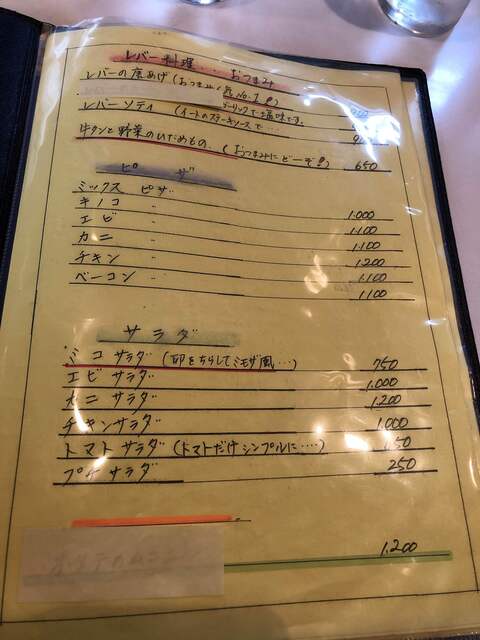 レバー料理 ‥ おつまみ
レバーの唐あげ (おつまみ人気No.1!!)
ガーリックで塩味です。
レバーソティ (イートのステーキソースで…
牛タンと野菜のいためもの (おつまみにどーぞ!!) 650
ピザ
ミックス ピザ 1.000
キノコ 〃 1.100
エビ 〃 1.100
カニ 〃 1.200
チキン 〃 1.100
ベーコン 〃 1.100
サラダ
ミコサラダ (卵をちらしてミモザ風…) 750
エビサラダ 1.000
カニサラダ 1.200
チキンサラダ 1.000
トマトサラダ (トマトだけシンプルに‥‥) 50
プチサラダ 250
1.200